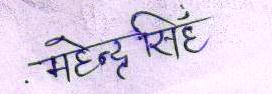 महेन्द्र सिहँ